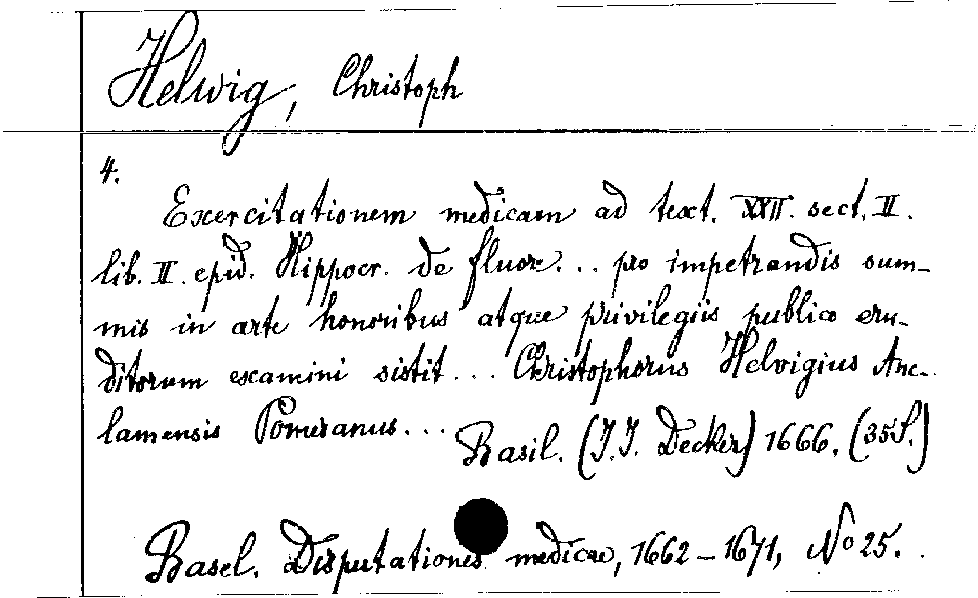 Helwig, Christoph
4.
Exercitationem medicam ad text. XXII. sect. II.
lib. II. epid. Hippocr. de fluore... pro impetrandis sum-
mis in arte honoribus atque privilegiis publico eru-
ditorum examini sistit... Christophorus Helvigius Anc-
lamensis Pomeranus...
Basil. (J. J. Decker) 1666. (35 S.)
Basel. Disputationes medicae, 1662-1671, No 25.